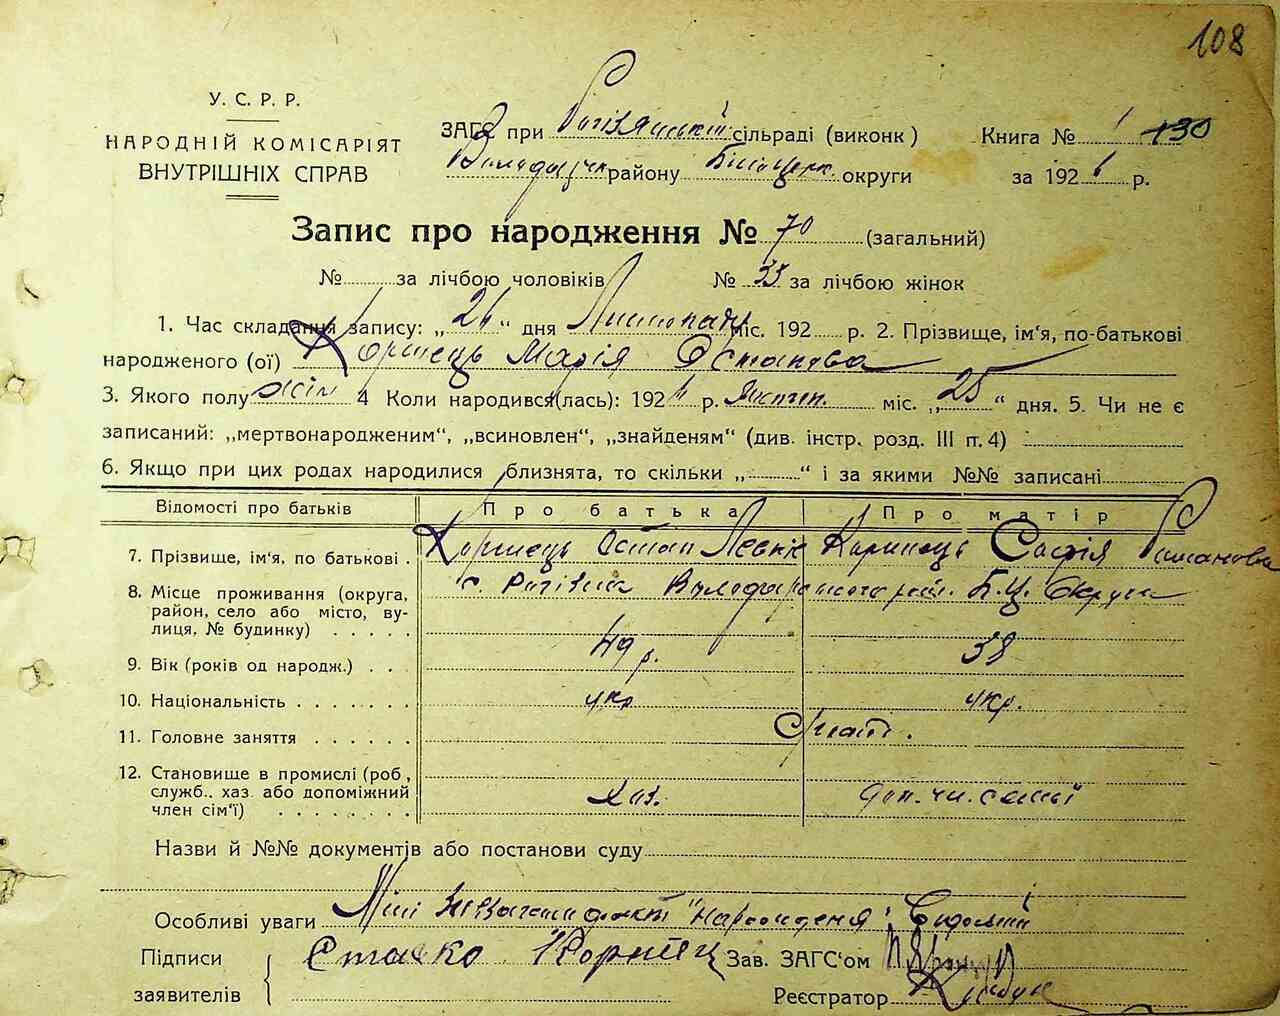 108
У. С. Р. Р.
НАРОДНІЙ КОМІСАРІЯТ
ВНУТРІШНІХ СПРАВ
ЗАГС при сільраді (виконк )
району Білоцерк. округи
Книга № 1 130
за 1926 р.
Запис про народження № 70 (загальний)
№ за лічбою чоловіків № 33 за лічбою жінок
1. Час складання запису: „26“ дня Листопада міс. 192 р. 2. Прізвище, ім'я, по-батькові
народженого (ої) Корнієць Марія Остапова
3. Якого полу жін 4 Коли народився(лась): 1926 р. Листоп. міс. „25“ дня. 5. Чи не є
записаний: „мертвонародженим“, „всиновлен“, „знайденям“ (див. інстр. розд. III п. 4)
6. Якщо при цих родах народилися близнята, то скільки „ “ і за якими №№ записані
Відомості про батьків Про батька Про матір
7. Прізвище, ім'я, по батькові . Корнієць Остап Корнієць Софія Романова
8. Місце проживання (округа, район, село або місто, вулиця, № будинку) с. Б.Ц. Округи
9. Вік (років од народж.) . . . 49 р. 38
10. Національність . . . . . . . укр укр.
11. Головне заняття . . . . . .
12. Становище в промислі (роб, служб., хаз. або допоміжний член сім'ї) . . . . . . . Хаз. доп. чл. сем'ї
Назви й №№ документів або постанови суду
Особливі уваги Мені факт народження Відомий
Підписи заявителів Корнієц Зав. ЗАГС'ом
Реєстратор